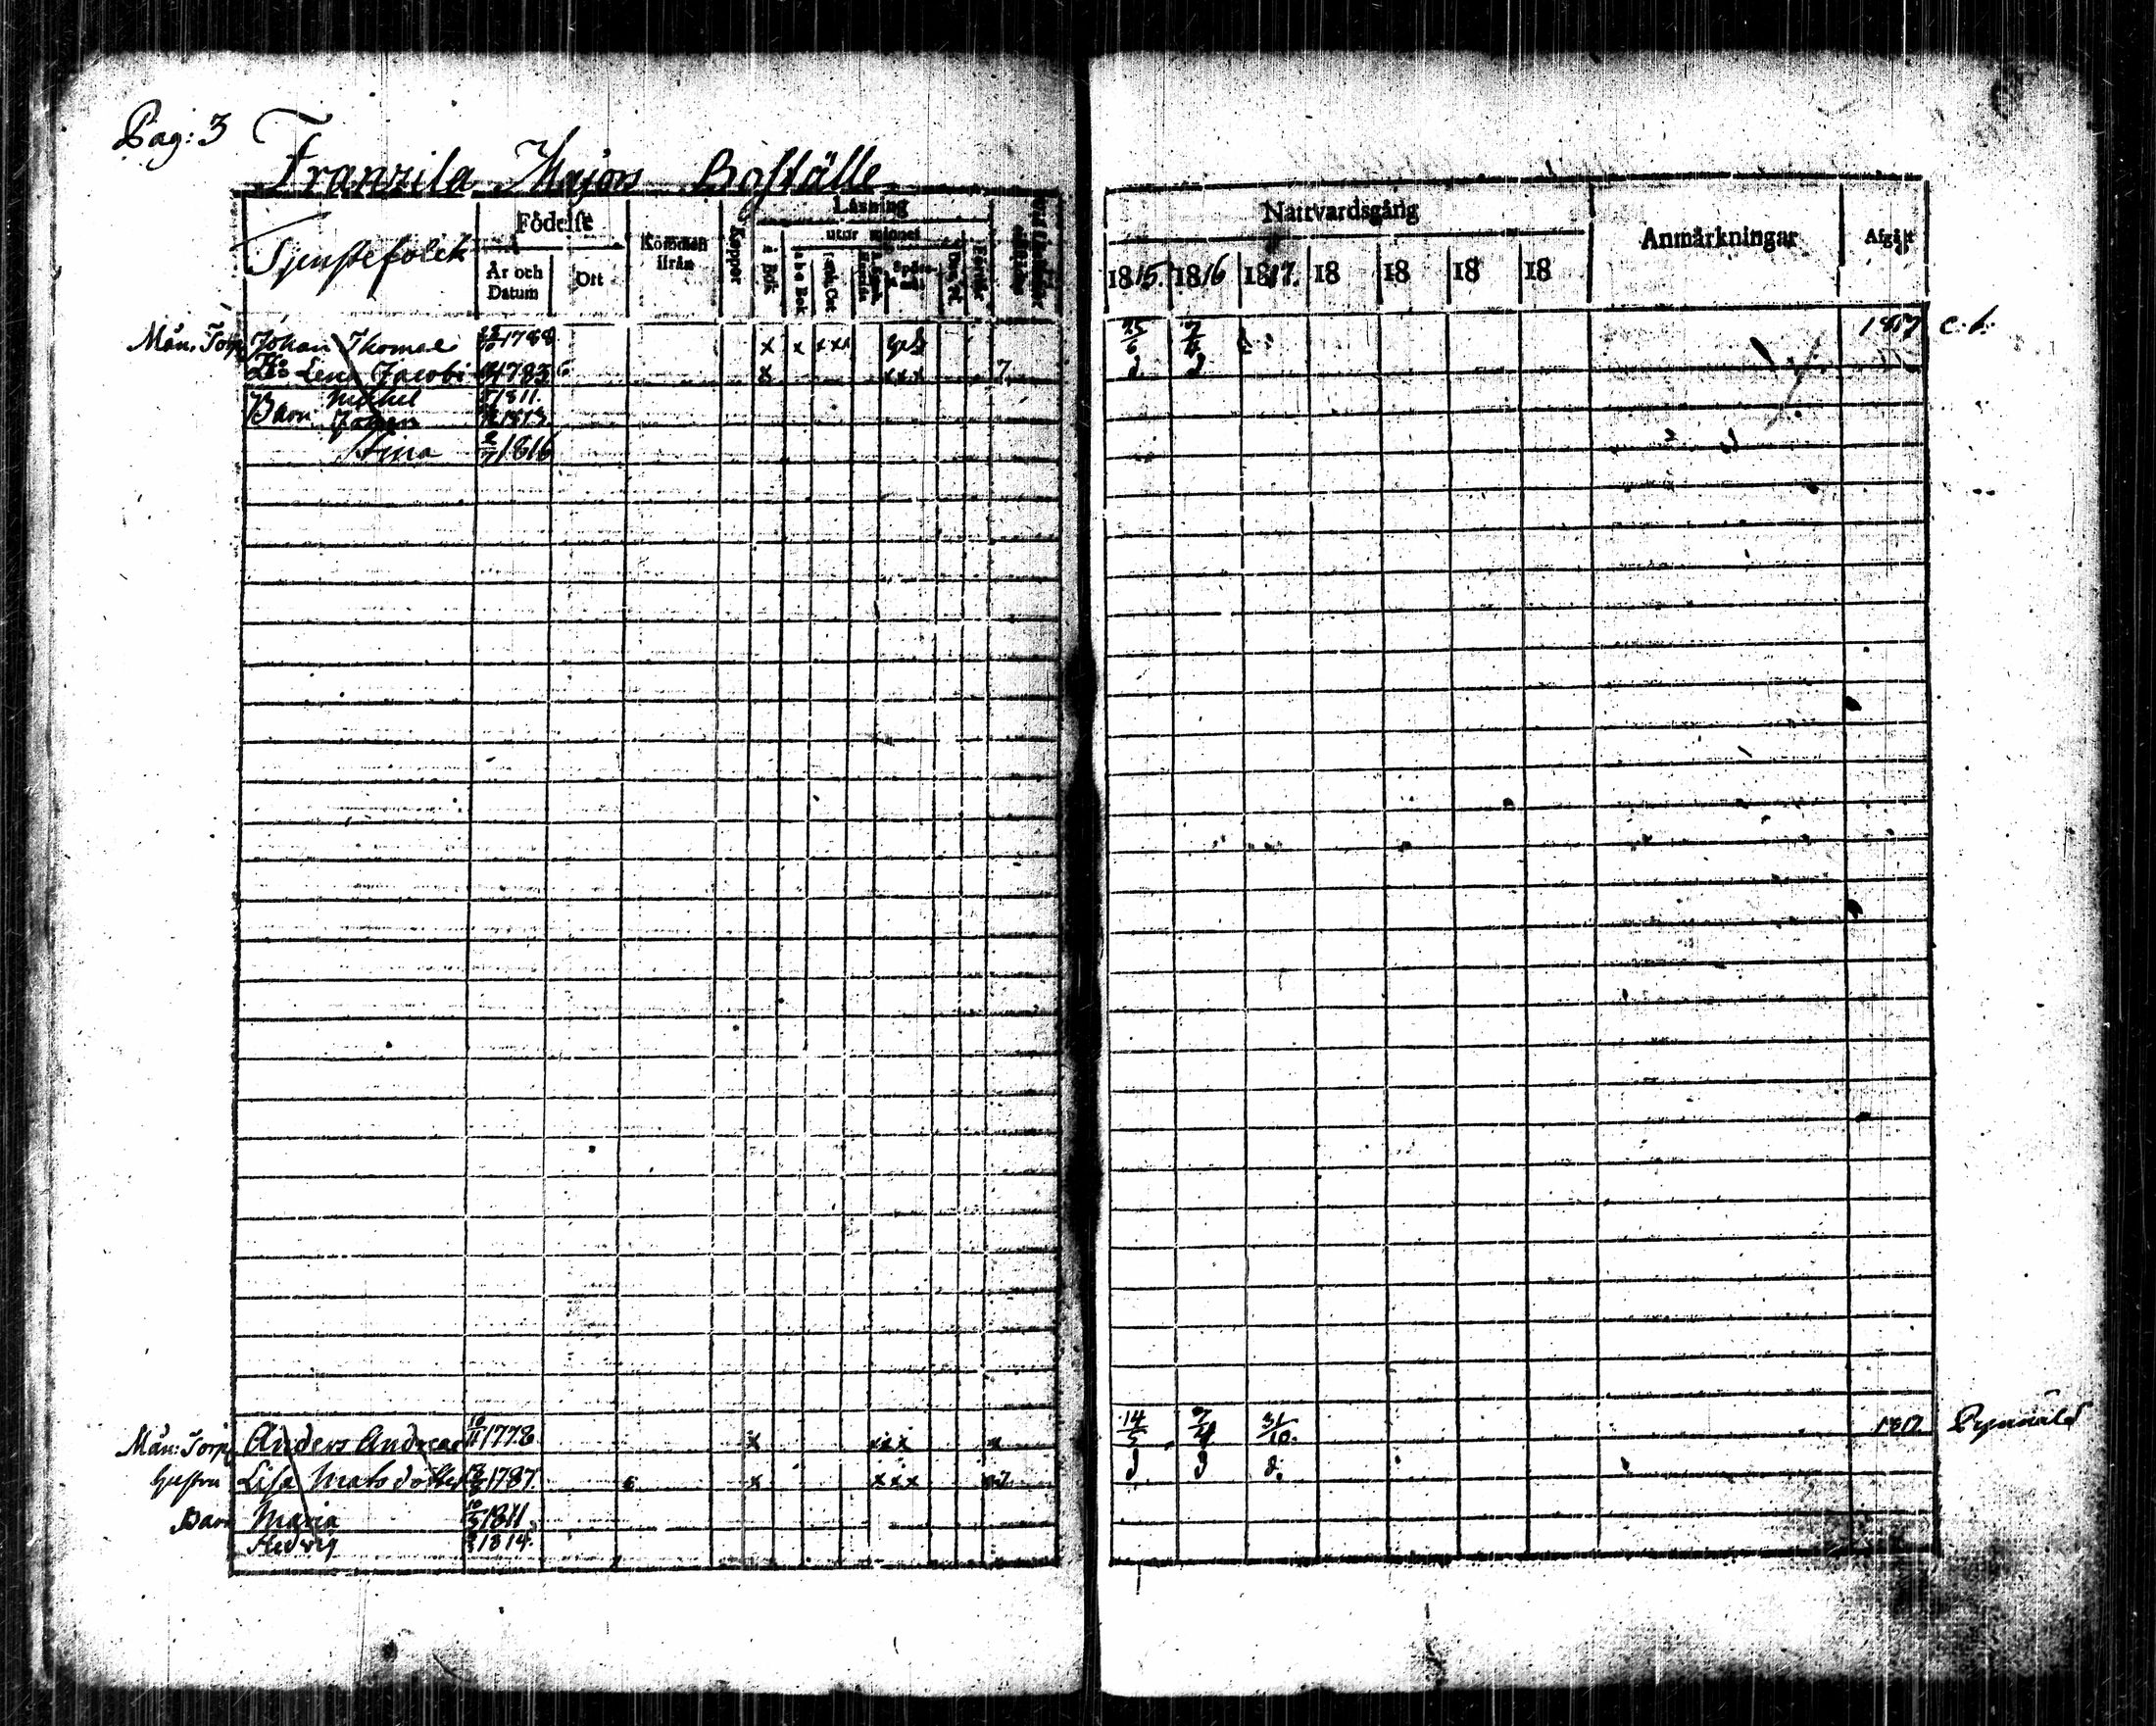 Pag: 3
Franzila Majors Boställe
Tjenstefolck
Födelse
År och Datum
Ort
Kommen ifrån
Koppor
Läsning
utur minnet
i Bok
a b c Bok
Nattvardsgång
1815. 1816 1817. 18 18 18 18
Anmärkningar
Afgått
Mån. Torp Johan Thomae 1788 x x xxx 25/6 1817
Lena Jacobi 1783 x xxx 7
Barn Michel 1811.
Johan 1813.
Stina 2/7 1816
Mån: Torp Anders Andreae 10/11 1778 x xxx x 14/5 7/4 31/10. 1817.
Hustru Lisa Matsdotter 1787. x xxx
Barn Maria 10/3 1811
Hedvig 1814.